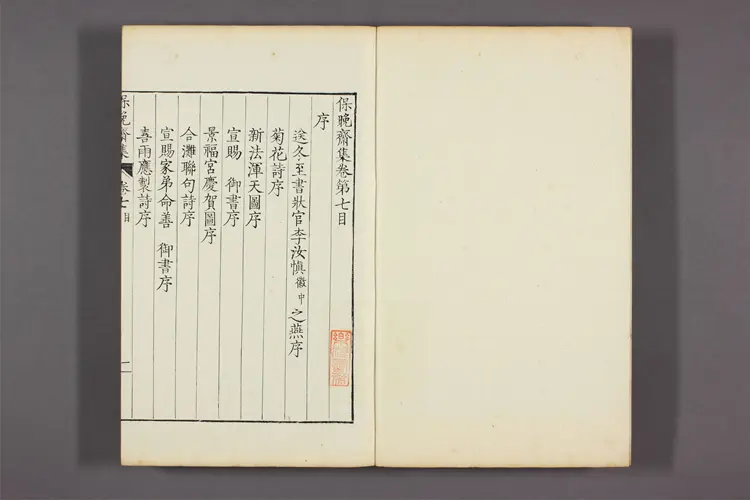 保晚齋集卷第七目
序
送冬至書狀官李汝愼徽中之燕序
菊花詩序
新法渾天圖序
宣賜 御書序
景福宮慶賀圖序
合灘聯句詩序
宣賜家弟命善 御書序
喜雨應製詩序
保晚齋集 卷七目 一